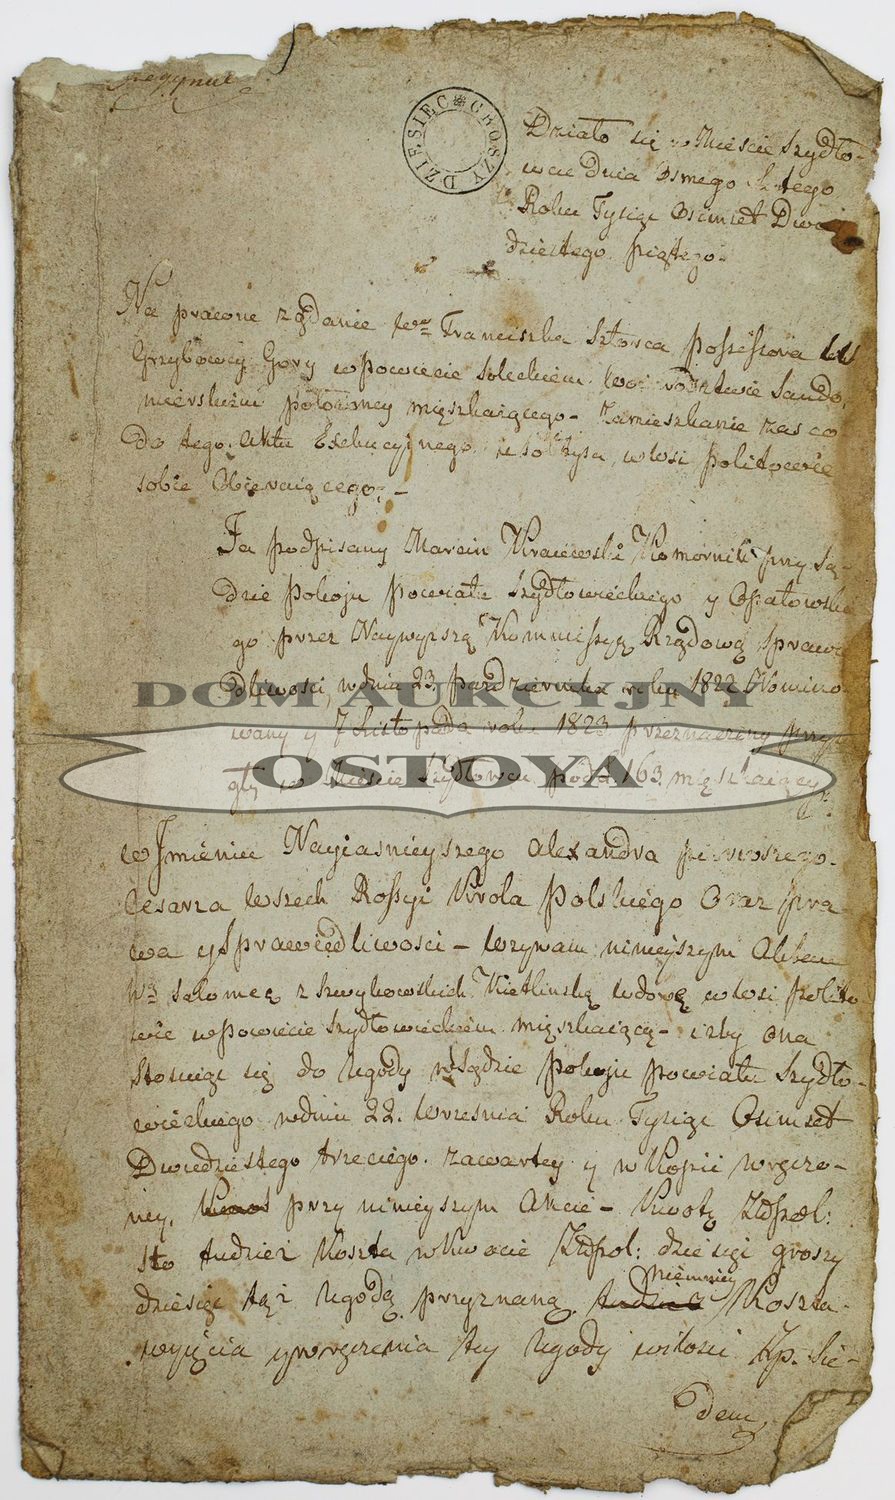 DZIESIEC GROSZY
Działo się w Mieście Szydło-
wcu Dnia Osmego Lutego
Roku Tysiąc Osimset Dwu
dziestego piątego.
Na prawne żądanie Franciszka possessora
Grzybowey Gory w powiecie Soleckim Woiewodztwie Sando
mierskiem położoney mięszkaiącego - Zamieszkanie zas co
do tego Aktu Exekucyinego u Sołtysa w wsi Politowie
sobie Obieraiącego; -
Ja podpisany Marcin Kraiewski Komornik przy Są-
dzie Pokoju Powiatu Szydłowieckiego y Opatowskie
go przez Naywyższą Kommissyą Rządową Sprawie
dliwości, w dniu 23 Pazdziernika roku 1822 Nomino-
wany y 7 Listopada roku 1823 przeznaczony przysię
gły w Mieście Szydłowcu pod N 163 mięszkaiący
DOM AUKCYJNY
OSTOYA
w Jmieniu Nayiasnieyszego Alexandra pierwszego.
Cesarza Wszech Rossyi Krola Polskiego Oraz Pra
wa y Sprawiedliwosci - Wzywam nineyszym Aktem
Salomeą z Kietlinską wdowę w wsi Polito
wie w powiecie Szydłowieckiem mięszkaiącą - izby ona
Stosuiąc się do Ugody w Sądzie Pokoju Powiatu Szydło-
wieckiego w dniu 22. Września Roku Tysiąc Osimset
Dwudziestego trzeciego. zawartey y w Kopii wręczo-
ney, przy ninieyszym Akcie - Kwotę Złpol:
Sto tudzież Koszta w Kwocie Złpol: dziesięć groszy
dziesięć tąż Ugodą przyznaną. niemniey Koszta.
wyięcia y wręczenia tey Ugody w ilosci Zp. Sie-
dem